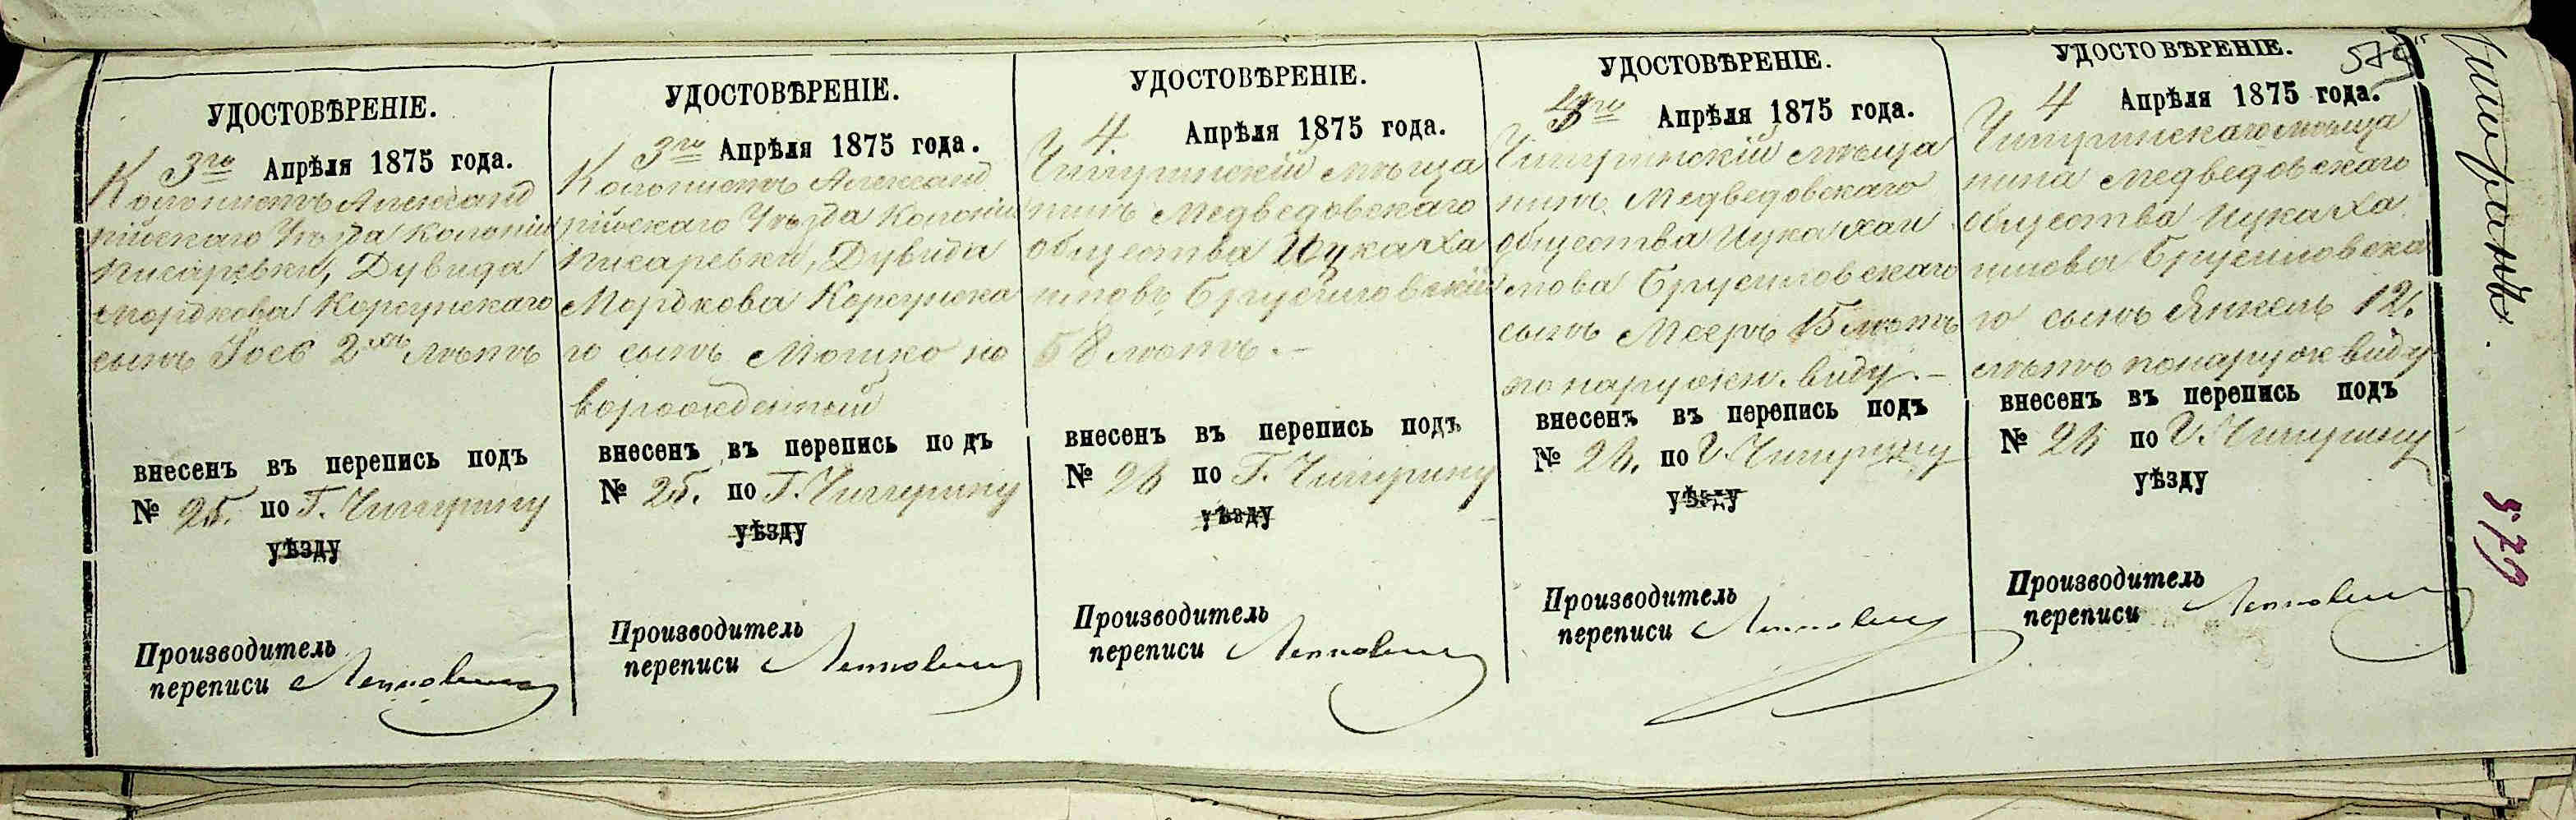 УДОСТОВѢРЕНІЕ.
3го Апрѣля 1875 года.
Колонистъ Александ
рійскаго Уѣзда Колоніи
Писаревки, Дувида
Мордкова Корсунскаго
сынъ Іосѳ 2хъ лѣтъ
внесенъ въ перепись подъ
№ 25. по Г. Чигирину
уѣзду
Производитель
переписи
УДОСТОВѢРЕНІЕ.
3го Апрѣля 1875 года.
Колонистъ Александ
рійскаго Уѣзда Колоніи
Писаревки, Дувида
Мордкова Корсунска
го сынъ Мошко но
ворожденный
внесенъ въ перепись подъ
№ 25. по Г. Чигирину
уѣзду
Производитель
переписи
УДОСТОВѢРЕНІЕ.
4. Апрѣля 1875 года.
Чигиринскій мѣща
нинъ Медведовскаго
общества Ицка Ха
имовъ Брусиловскій
58 лѣтъ.–
внесенъ въ перепись подъ
№ 26 по Г. Чигирину
уѣзду
Производитель
переписи
УДОСТОВѢРЕНІЕ.
Апрѣля 1875 года.
Чигиринскій мѣща
нинъ Медведовскаго
общества Ицка Хаи
мова Брусиловскаго
сынъ Мееръ 15 лѣтъ
по наружн. виду.–
внесенъ въ перепись подъ
№ 26. по Г. Чигирину
уѣзду
Производитель
переписи
УДОСТОВѢРЕНІЕ.
4 Апрѣля 1875 года.
Чигиринскаго мѣща
нина Медведовскаго
общества Ицка Ха
имова Брусиловска
го сынъ Янкель 12.
лѣтъ по наруж виду
внесенъ въ перепись подъ
№ 26 по Г. Чигирину
уѣзду
Производитель
переписи
579